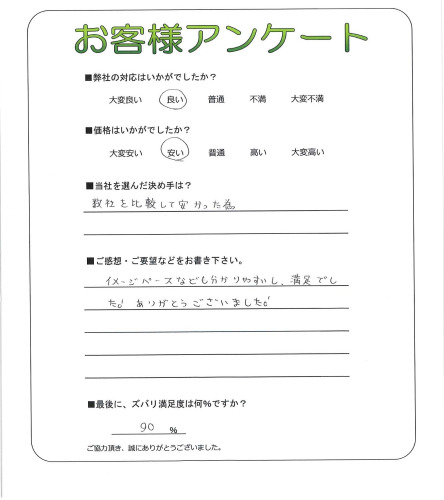 お客様アンケート
■弊社の対応はいかがでしたか？
大変良い 良い 普通 不満 大変不満
■価格はいかがでしたか？
大変安い 安い 普通 高い 大変高い
■当社を選んだ決め手は？
数社を比較して安かった為
■ご感想・ご要望などをお書き下さい。
イメージベースなどし分かりやすいし、満足でし
た。ありがとうございました。
■最後に、ズバリ満足度は何％ですか？
90 ％
ご協力頂き、誠にありがとうございました。